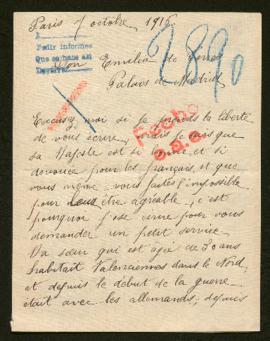 Paris 7 octobre 1916
Pedir informes
Que se hace así
2890
Don Emilio de
Palais de Madrid
Excusez moi si je prends la liberté
de vous écrire, mais je sais que
Sa Majesté est si bonne et si
dévouée pour les français, et que
vous même vous faites l'impossible
pour leur être agréable, c'est
pourquoi j'ose venir pour vous
demander un petit service
Ma sœur qui est agée de 30 ans
habitait Valenciennes dans le Nord,
et depuis le début de la guerre
était avec les allemands, depuis